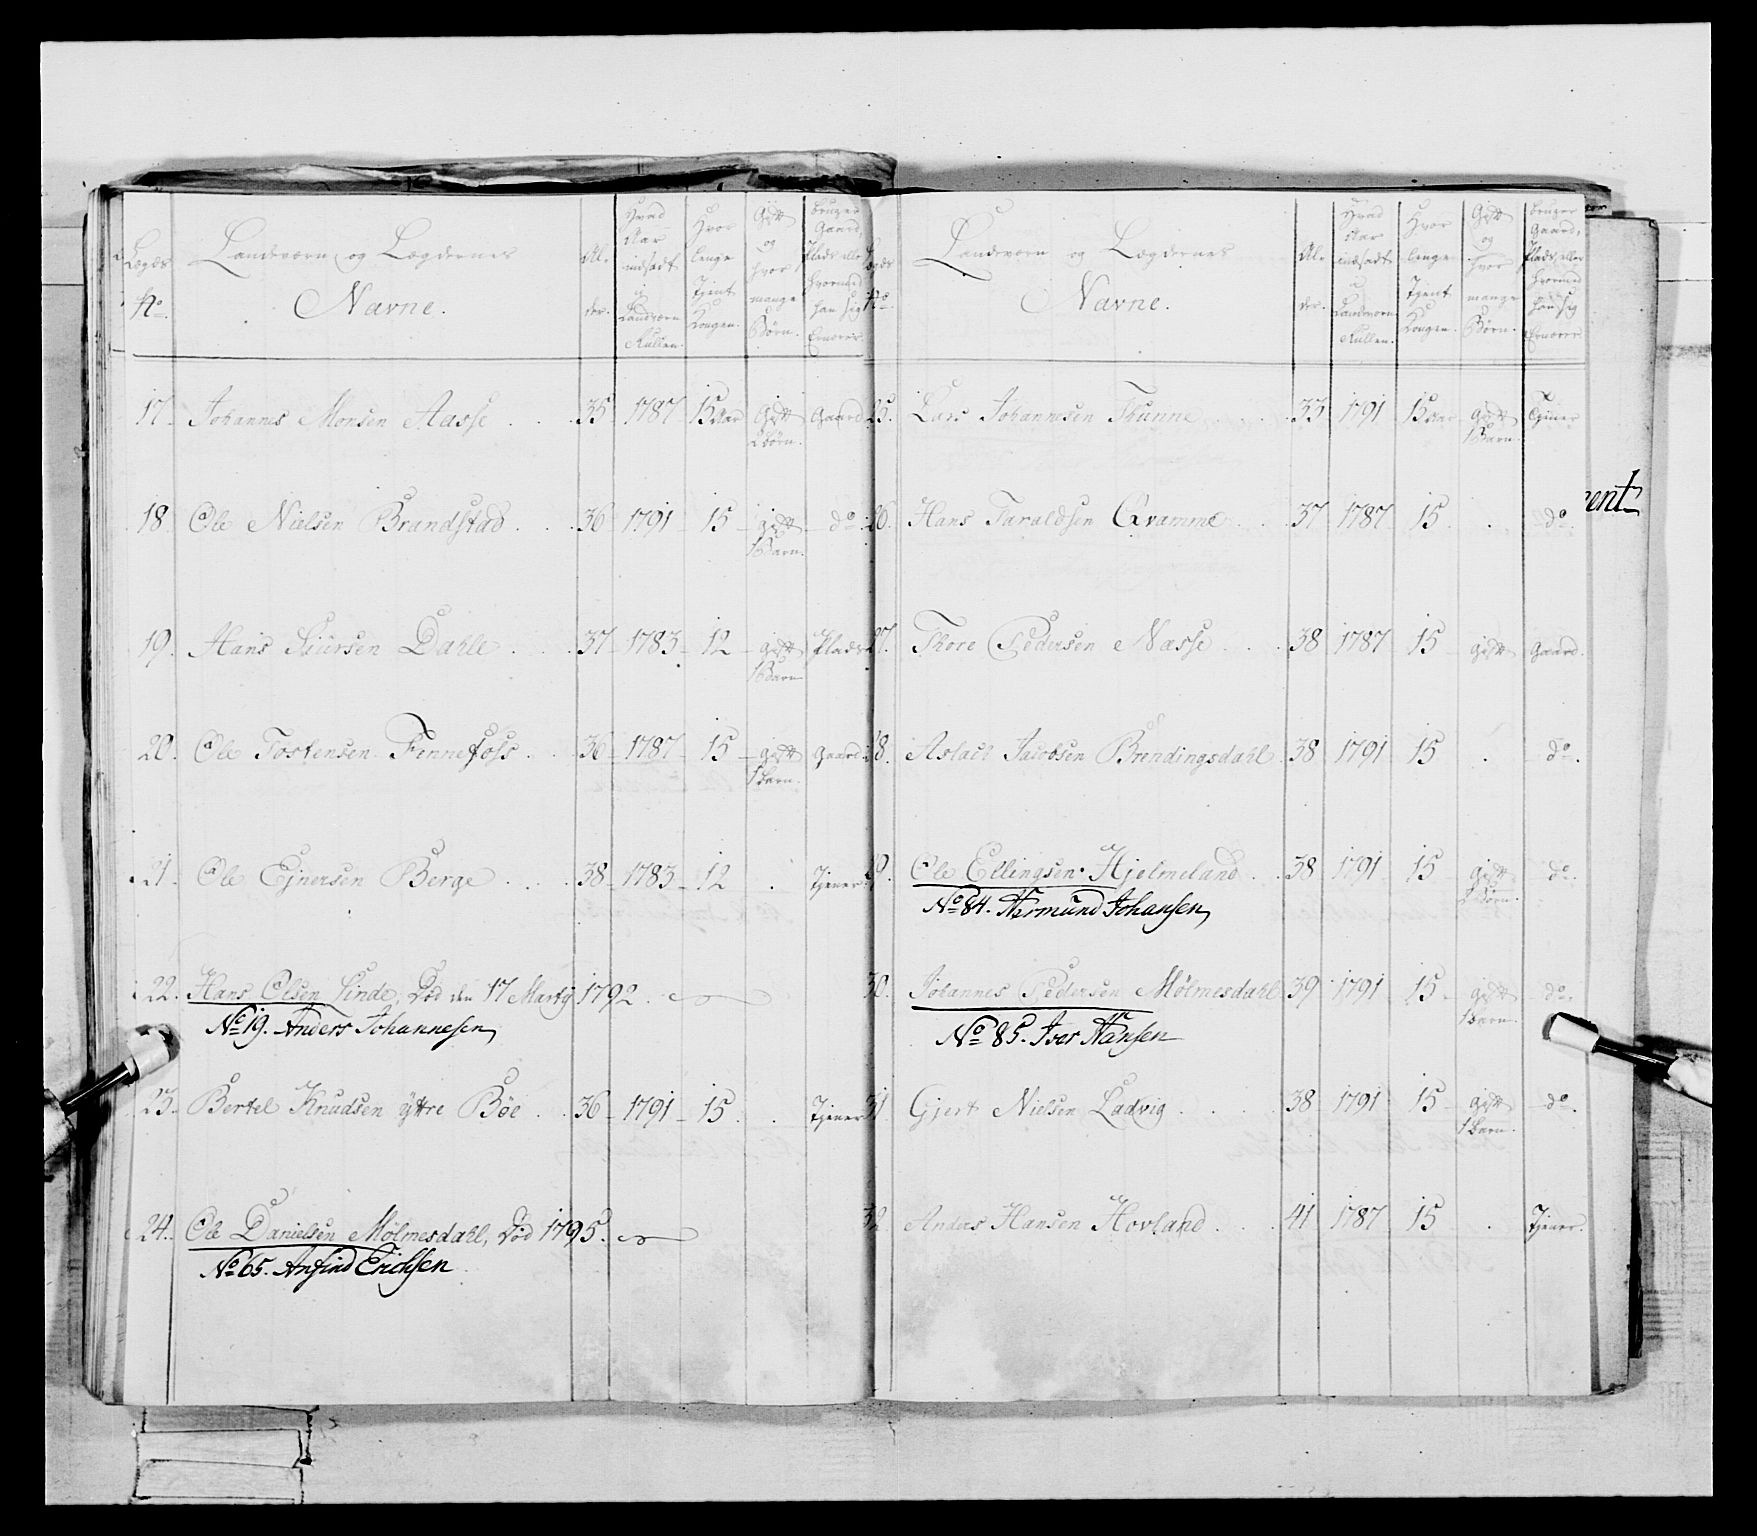 Lægds No.
Landeværn og Lægdernes Navne.
Al-der.
Hvad Aar indsadt i Landværn Rullen.
Hvor lenge Tjent Kongen.
Gift og hvor mange Børn.
bruger Gaard, Plads eller hvormed han sig Ernærer
17. Johannes Monsen Aasse 35 1787 15 Aar Gift 2 børn. Gaard
18. Ole Nielsen Brandstad 36 1791 15 gift 1 Barn. do
19. Hans Siursen Dahle 37 1783 12 gift 1 Barn Plads
20. Ole Tostensen Finnefoss 36 1787 15 gift 1 barn. Gaard
21. Ole Ejnersen Berge 38 1783 12 . Tjener
22. Hans Olsen Linde, Død den 17 Martij 1792.
No 19. Anders Johannesen
23. Bertel Knudsen ÿtre Böe 36 1791 15 . Tjener
24. Ole Danielsen Mölmesdahl, Död 1795.
No 65. Anfind Erichsen
Lægds No.
Landeværn og Lægdernes Navne.
Al-der.
Hvad Aar indsadt i Landværn Rullen.
Hvor lenge Tjent Kongen.
Gift og hvor mange Börn.
bruger Gaard, Plads eller hvormed han sig Ernærer
25. Lars Johannesen Thunne 33 1791 15 Aar gift 1 Barn Tjener
26. Hans Taraldsen Qvamme 37 1787 15 . do
27. Thore Pedersen Næsse 38 1787 15 gift Gaard.
28. Aslack Jacobsen Brendingsdahl 38 1791 15 . do.
29. Ole Ellingsen Hjelmeland 38 1791 15 gift Börn. do.
No 84. Hermund Johansen
30. Johannes Pedersen Mölmesdahl 39 1791 15 gift 1 barn. do.
No 85. Iver Hansen
31. Gjert Nielsen Ladvig 38 1791 15 gift 1 barn. do.
32. Anders Hansen Hovland 41 1787 15 . Tjener.